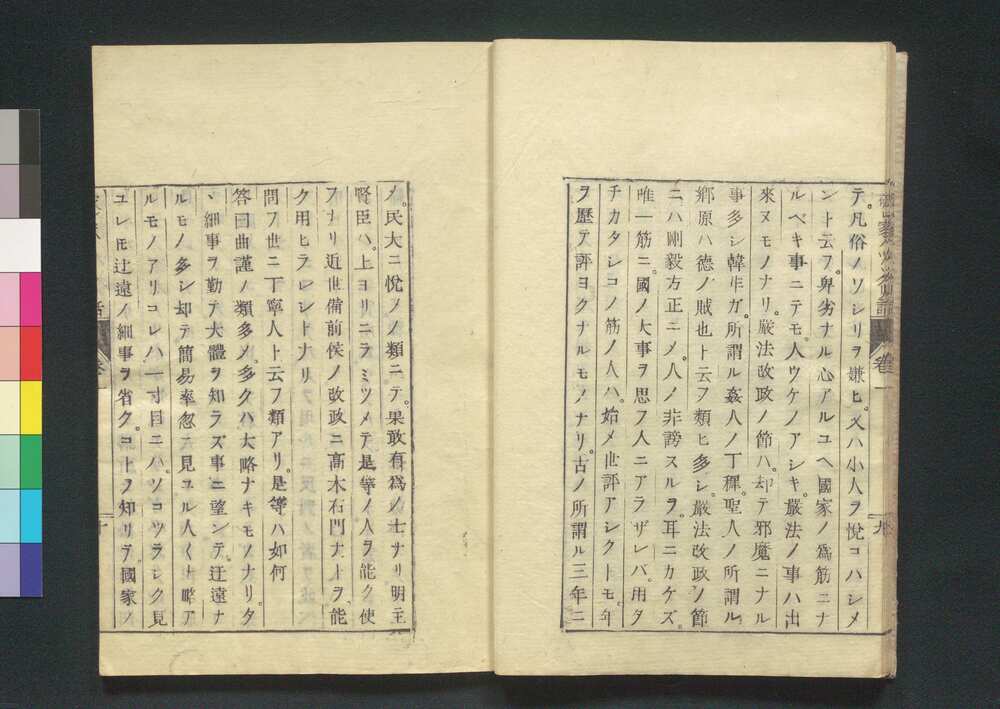 テ。凡俗ノソシリヲ嫌ヒ。又ハ小人ヲ悅コハシメ
ント云フ。卑劣ナル心アルユヘ國家ノ爲筋ニナ
ルベキ事ニテモ。人ウケノアシキ。嚴法ノ事ハ出
來ヌモノナリ。嚴法改政ノ節ハ。却テ邪魔ニナル
事多シ韓生ガ。所謂ル姦人ノ丁穉。聖人ノ所謂ル
鄕原ハ德ノ賊也ト云フ類ヒ多シ。嚴法改政ノ節
ニハ剛毅方正ニメ。人ノ非謗スルヲ。耳ニカケズ。
唯一筋ニ。國ノ大事ヲ思フ人ニアラザレバ。用タ
チカタシコノ筋ノ人ハ。始メ世評アシクトモ。年
ヲ歷テ評ヨクナルモノナリ。古ノ所謂ル三年ニ
メ。民大ニ悅ノ類ニテ。果敢有爲ノ士ナリ明主
賢臣ハ。上ヨリニラミツメテ是等ノ人ヲ能ク使
フナリ近世備前侯ノ改政ニ高木石門ナトヲ能
ク用ヒラレシトナリ
問フ世ニ丁寧人ト云フ類アリ。是等ハ如何
答曰曲謹ノ類多メ。多クハ大略ナキモノナリ。タ
ヽ細事ヲ勤テ大體ヲ知ラズ事ニ望ンテ。迂遠ナ
ルモノ多シ却テ簡易率忽ニ見ユル人ハ大略ア
ルモノアリコレハ一寸目ニハ。ソコツラシク見
ユレトモ迂遠ノ細事ヲ省ク。コトヲ知リテ國家ノ
卷一
九
十